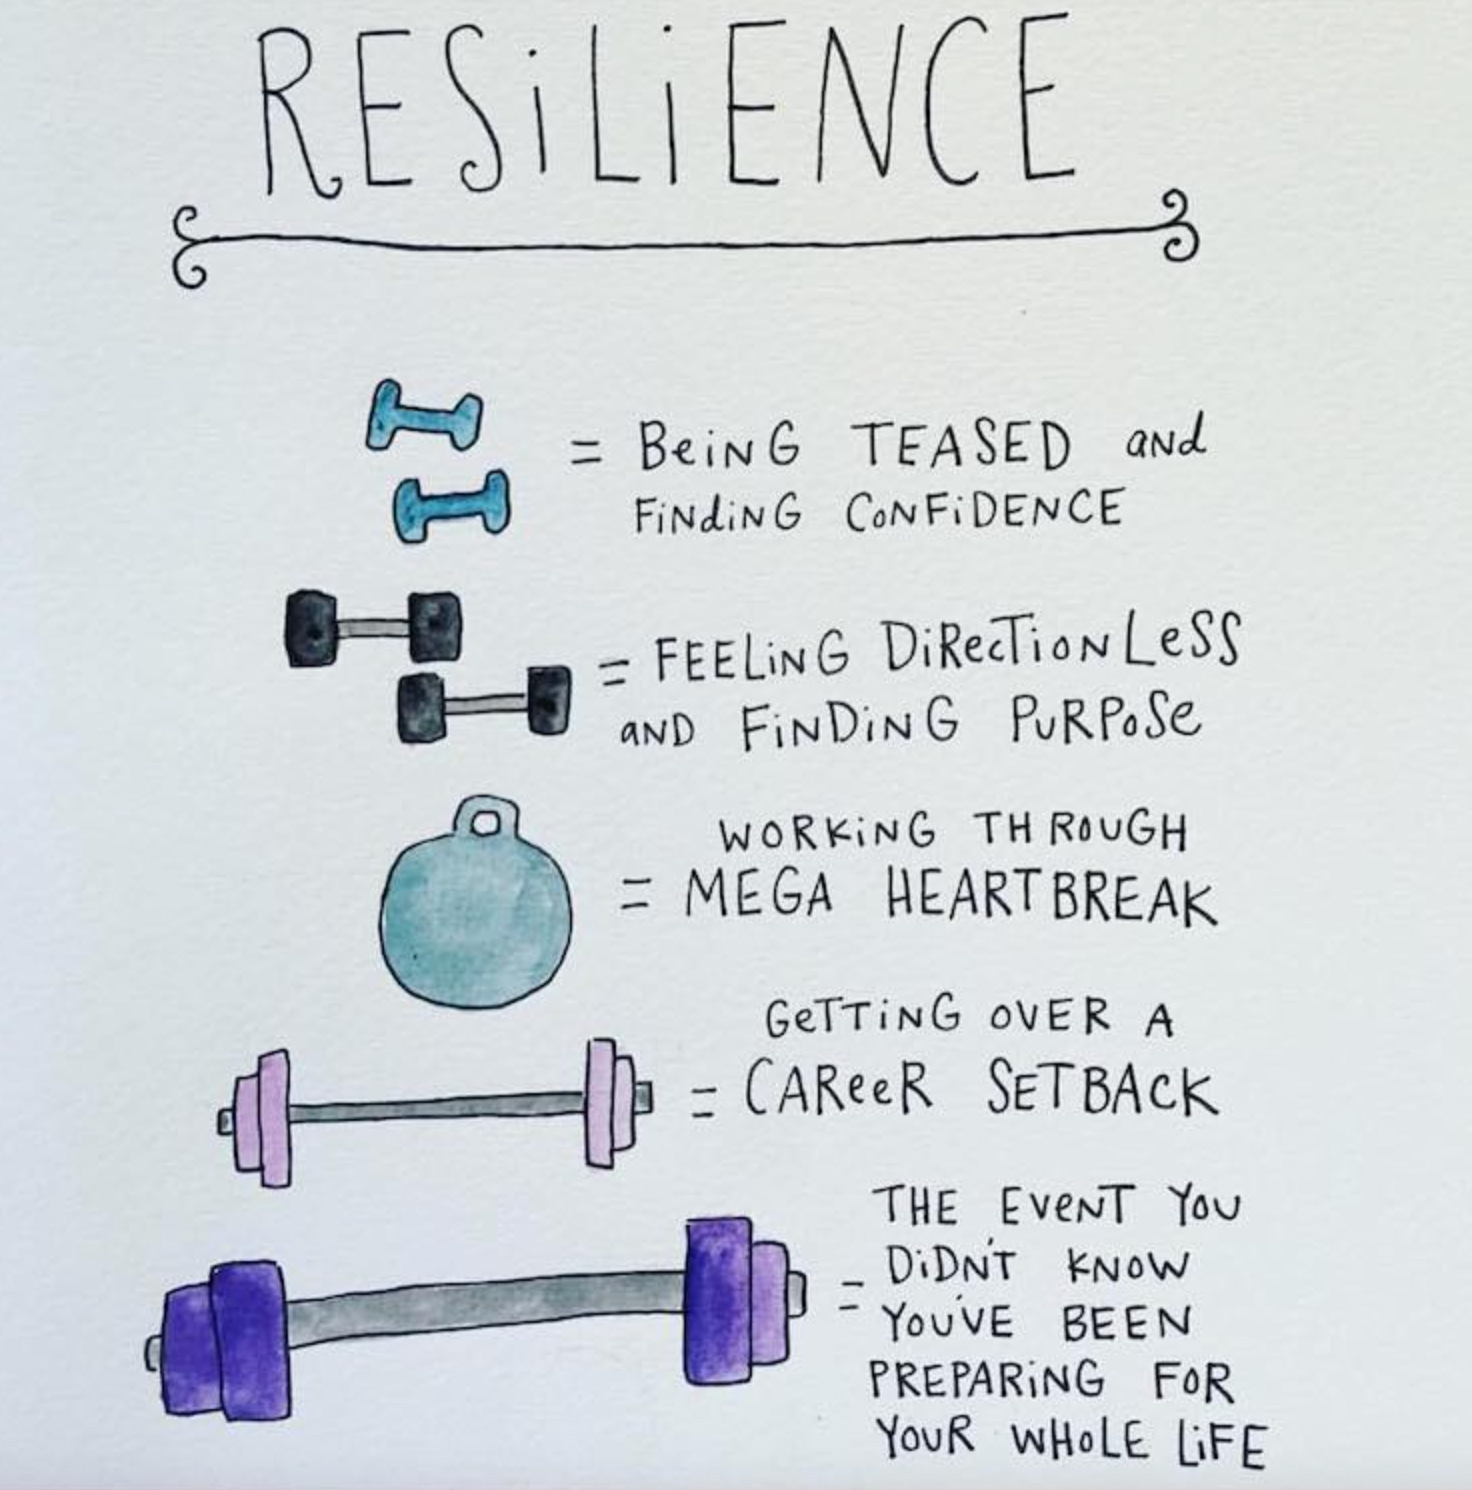 RESiLiENCE
= BeiNG TEASED aNd
FiNdiNG CoNFiDENCE
= FEELiNG DiRecTioNLeSS
aND FiNDiNG PuRPoSe
WORKiNG THROUGH
= MEGA HEARTBREAK
GeTTiNG OVER A
= CAReeR SETBACK
THE EVeNT YOU
= DiDN'T KNOW
YOU'VE BEEN
PREPARiNG FOR
YOUR WHoLE LiFE